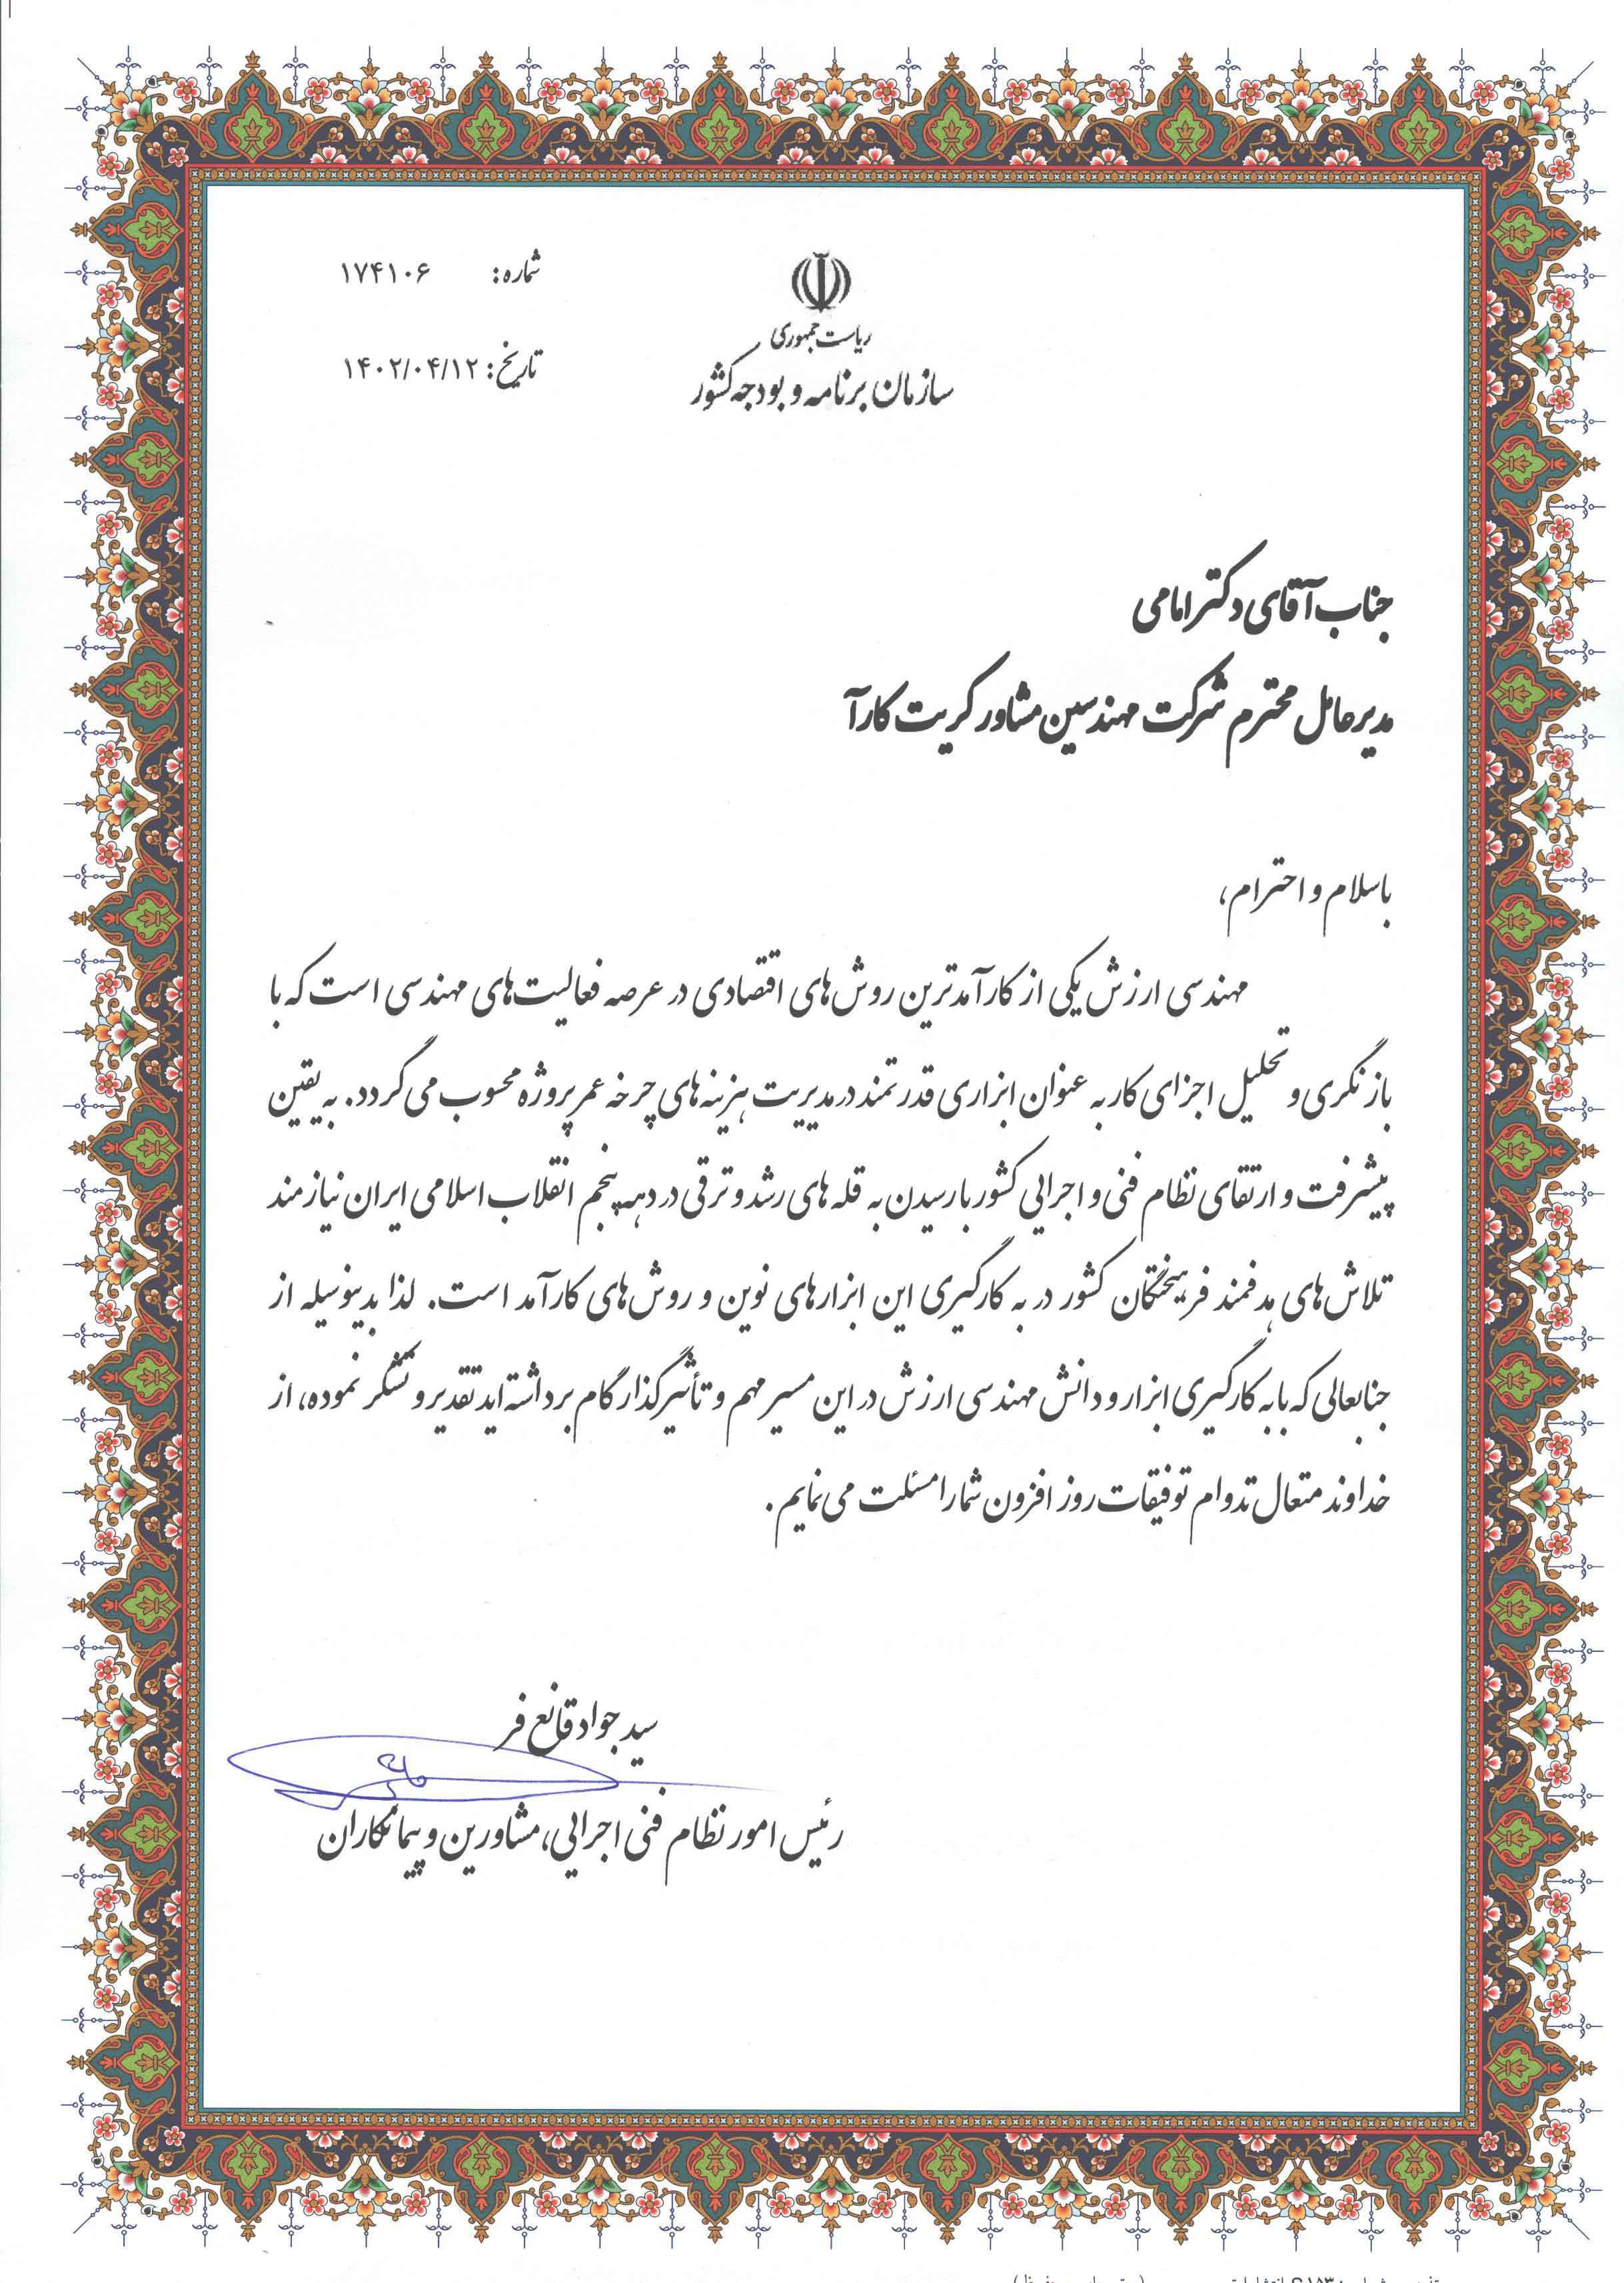 ریاست جمهوری
سازمان برنامه و بودجه کشور
شماره: ۱۷۴۱۰۶
تاریخ: ۱۴۰۲/۰۴/۱۲
جناب آقای دکتر امامی
مدیرعامل محترم شرکت مهندسین مشاور کریت کارآ
با سلام و احترام،
مهندسی ارزش یکی از کارآمدترین روش‌های اقتصادی در عرصه فعالیت‌های مهندسی است که با
بازنگری و تحلیل اجزای کار به عنوان ابزاری قدرتمند در مدیریت هزینه‌های چرخه عمر پروژه محسوب می‌گردد. به یقین
پیشرفت و ارتقای نظام فنی و اجرایی کشور با رسیدن به قله‌های رشد و ترقی در دهه پنجم انقلاب اسلامی ایران نیازمند
تلاش‌های هدفمند فرهیختگان کشور در به کارگیری این ابزارهای نوین و روش‌های کارآمد است. لذا بدینوسیله از
جنابعالی که با به کارگیری ابزار و دانش مهندسی ارزش در این مسیر مهم و تأثیرگذار گام برداشته‌اید تقدیر و تشکر نموده، از
خداوند متعال تدوام توفیقات روز افزون شما را مسئلت می‌نمایم.
سید جواد قانع فر
رئیس امور نظام فنی اجرایی، مشاورین و پیمانکاران